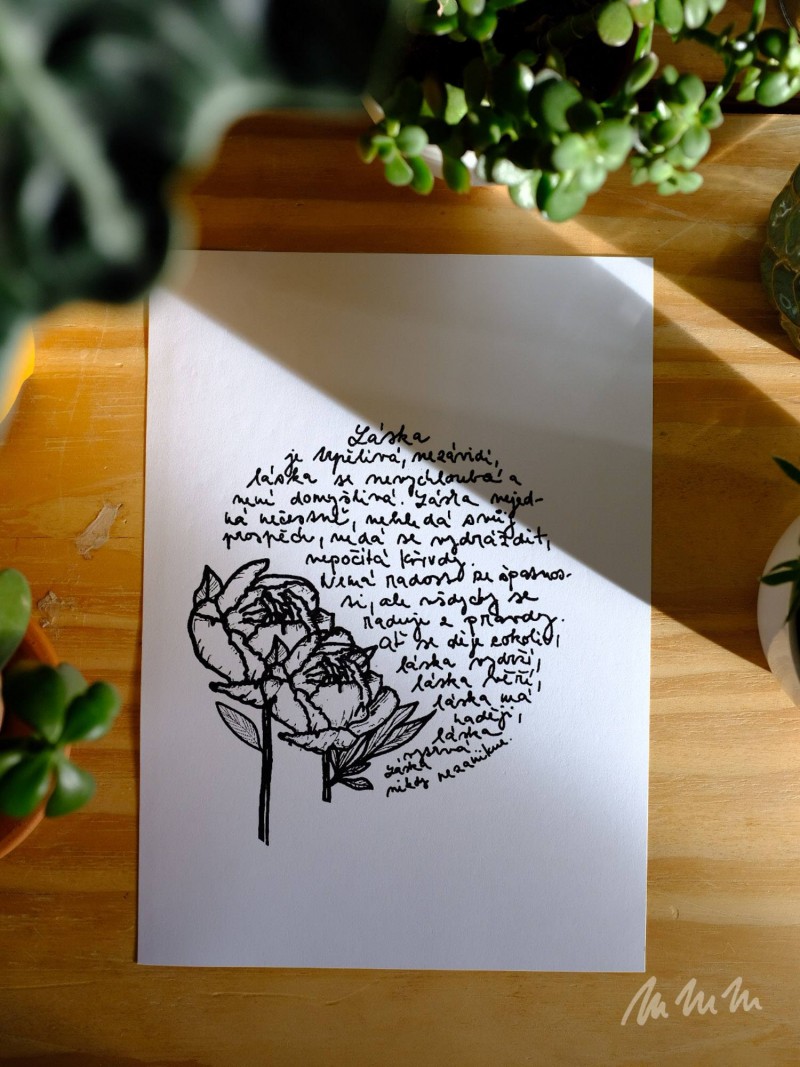 Láska
je trpělivá, nezávidí,
láska se nevychloubá a
není domýšlivá. Láska nejed-
ná nečestně, nehledá svůj
prospěch, nedá se vydráždit,
nepočítá křivdy.
Nemá radost ze špatnos-
ti, ale vždycky se
raduje z pravdy.
Ať se děje cokoliv,
láska vydrží,
láska věří,
láska má
naději,
láska
vytrvá.
Láska
nikdy nezanikne.